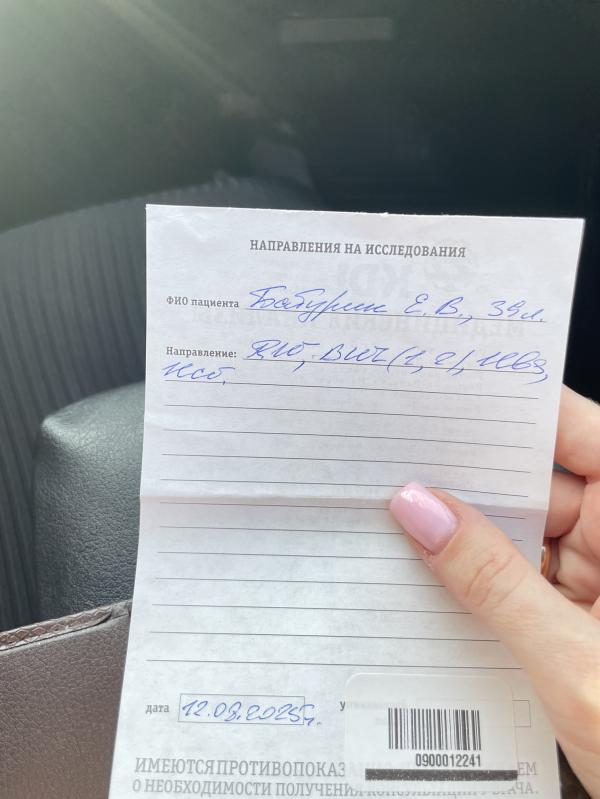 НАПРАВЛЕНИЯ НА ИССЛЕДОВАНИЯ
ФИО пациента Бабурин Е. В., 39л.
Направление: ВИЧ (1, 2),
дата 12.08.2025г.
0900012241
ИМЕЮТСЯ ПРОТИВОПОКАЗ
О НЕОБХОДИМОСТИ ПОЛУЧЕНИЯ